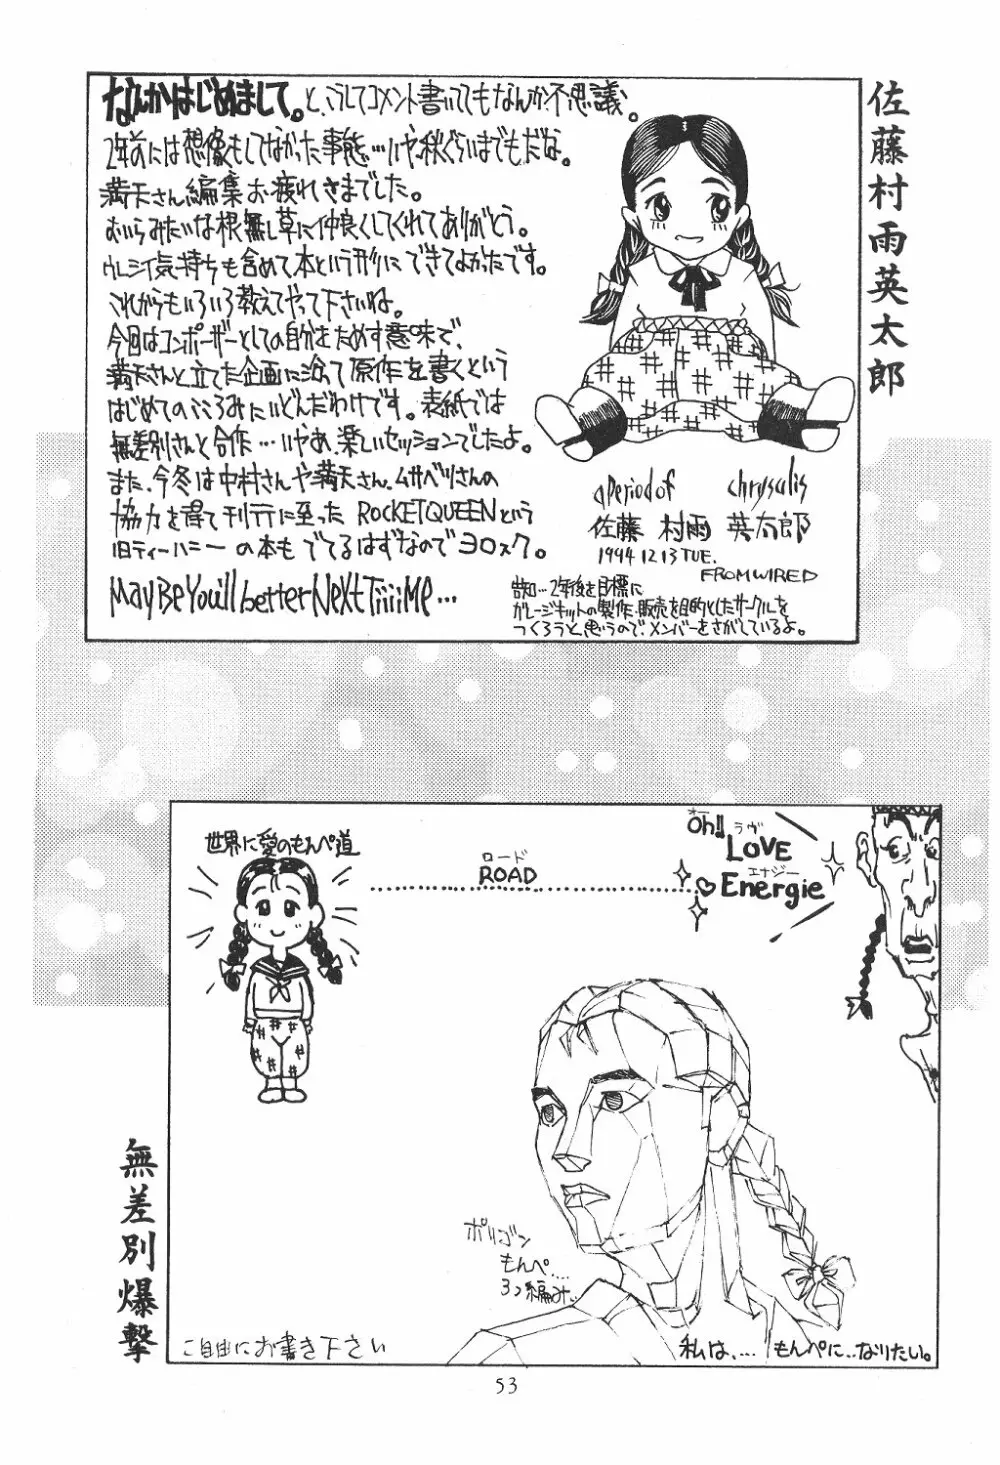 佐藤村雨英太郎
なんかはじめまして。と、こうしてコメント書いててもなんか不思議。
2年前には想像もしてなかった事態…いや、秋ぐらいまでもだな。
満天さん編集お疲れさまでした。
むいらみたいな根無し草に仲良くしてくれてありがとう。
ウレシイ気持ちも含めて本という形にできてよかったです。
これからもいろいろ教えてやって下さいね。
今回はコンポーザーとしての自分をためす意味で、
満天さんと立てた企画に沿って原作を書くという
はじめてのこころみにいどんだわけです。表紙では
無差別さんと合作…いやあ、楽しいセッションでしたよ。
また、今冬は中村さんや満天さん、ムサベツさんの
協力を得て刊行に至った ROCKETQUEENという
旧ティーハニーの本もでてるはずなのでヨロスク。
MayBeYou'll better NeXt TiiiiMe…
aperiod of chrysalis
佐藤 村雨 英太郎
1994 12 13 TUE.
FROM WIRED
告知…2年後を目標に
ガレージキットの製作、販売を目的としたサークルを
つくろうと思うので、メンバーをさがしているよ。
無差別爆撃
世界に愛のもんぺ道
ロード
ROAD
オー
Oh!!
ラヴ
LOVE
エナジー
Energie
ポリゴン
もんぺ…
3つ編み…
ご自由にお書き下さい
私は、… もんぺに…なりたい。
53